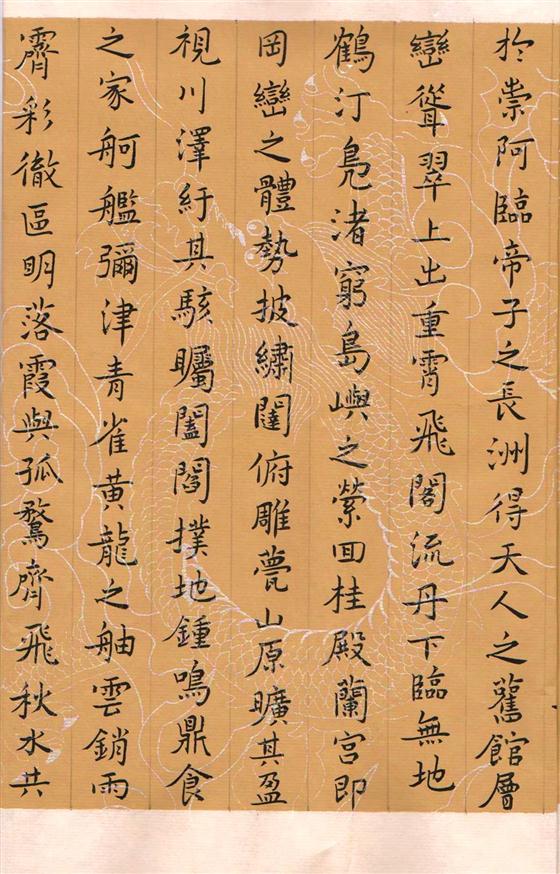 於崇阿臨帝子之長洲得天人之舊館層
巒聳翠上出重霄飛閣流丹下臨無地
鶴汀鳧渚窮島嶼之縈回桂殿蘭宮即
岡巒之體勢披繡闥俯雕甍山原曠其盈
視川澤紆其駭矚闔閻撲地鍾鳴鼎食
之家舸艦彌津青雀黃龍之舳雲銷雨
霽彩徹區明落霞與孤鶩齊飛秋水共